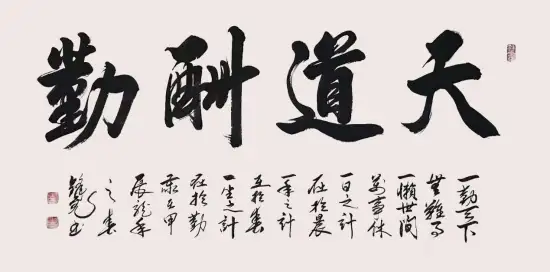 天道酬勤
一勤天下
無難事
一懶世間
萬事休
一日之計
在於晨
一年之計
在於春
一生之計
在於勤
歲次甲
辰龍年
之春
書